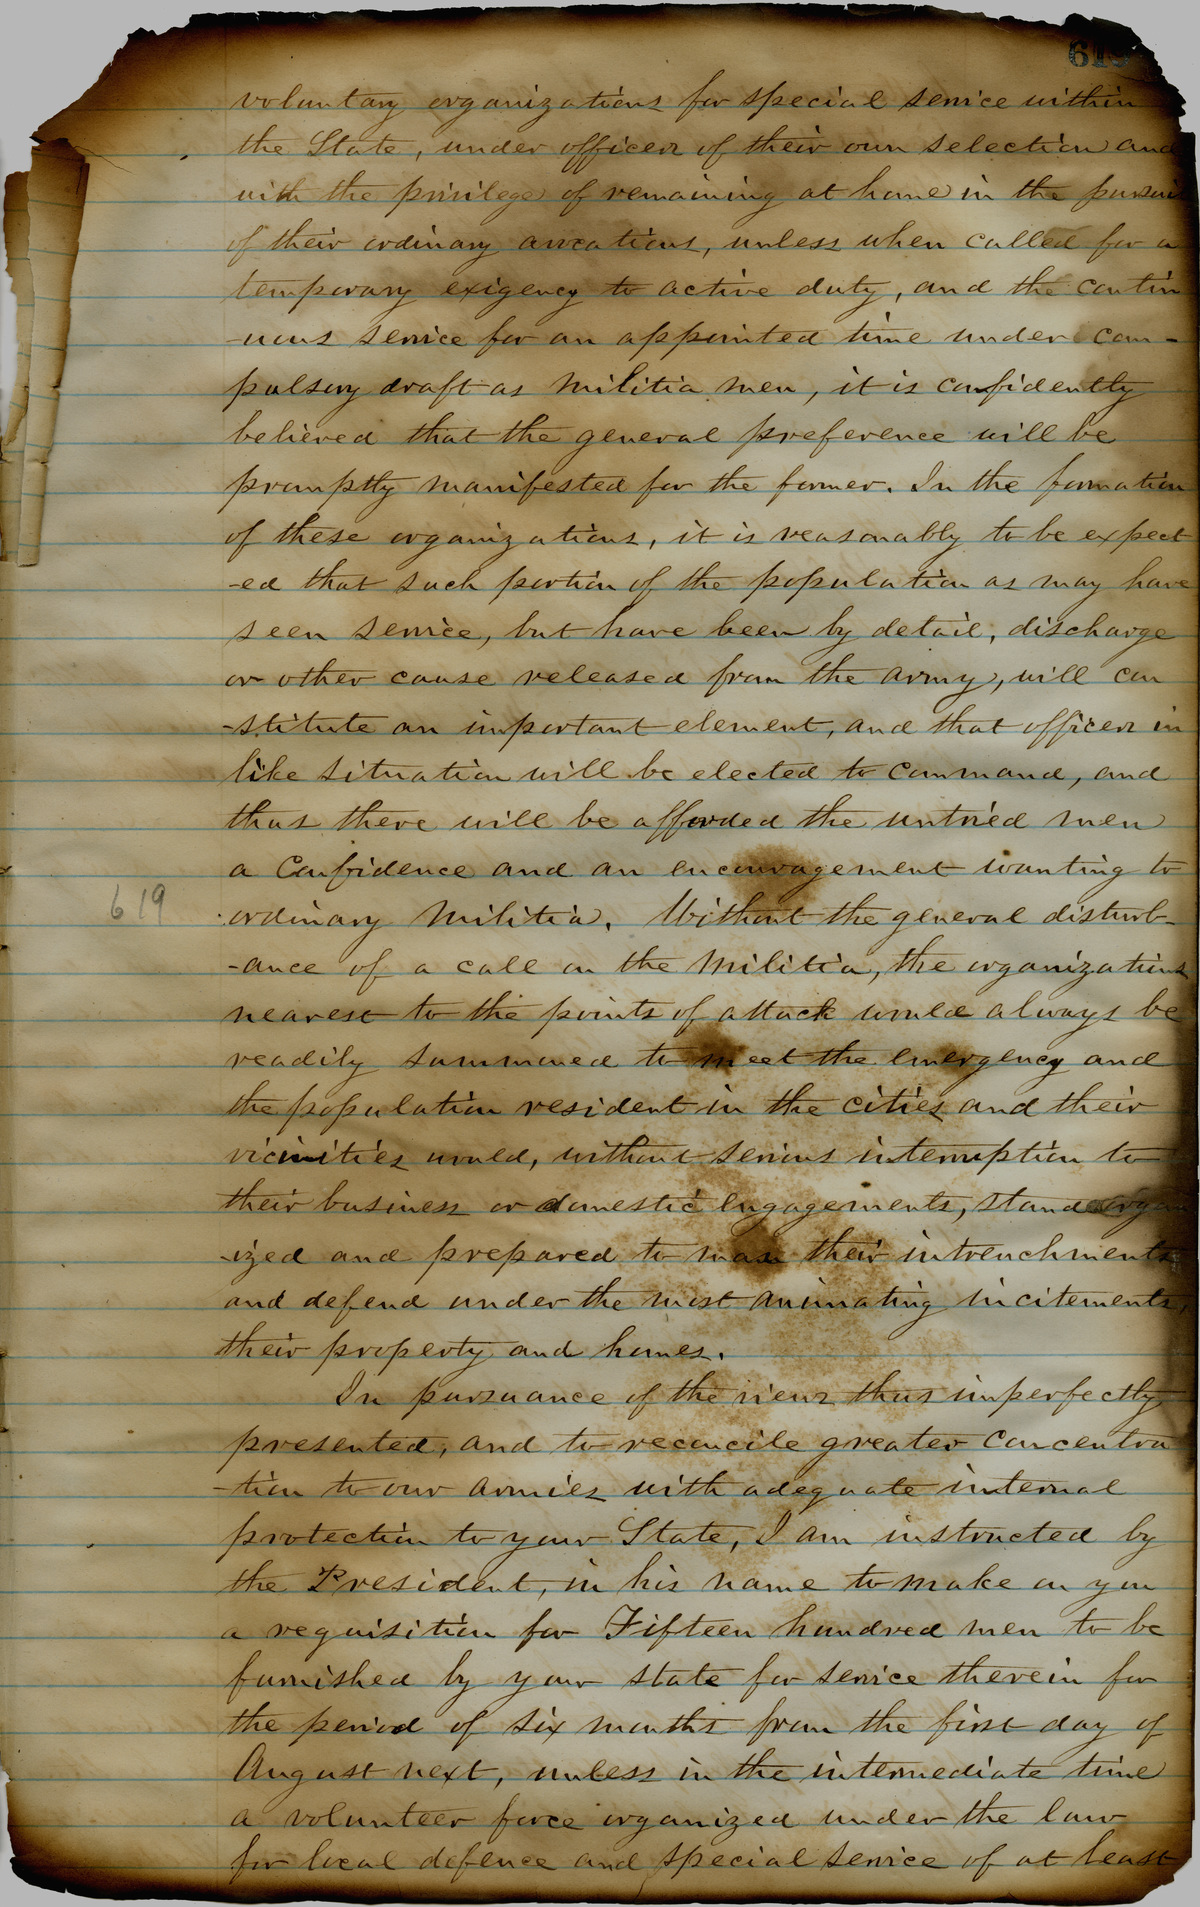 619
voluntary organizations for special service within
the State, under officers of their own selection and
with the privilege of remaining at home in the pursuit
of their ordinary avocations, unless when called for a
temporary exigency to active duty, and the contin
-uous service for an appointed time under com-
pulsory draft as militia men, it is confidently
believed that the general preference will be
promptly manifested for the former. In the formation
of these organizations, it is reasonably to be expect
-ed that such portion of the population as may have
seen service, but have been by detail, discharge
or other cause released from the army, will con
-stitute an important element, and that officers in
like situation will be elected to command, and
thus there will be afforded the untried men
a confidence and an encouragement wanting to
619
ordinary militia. Without the general disturb-
-ance of a call on the militia, the organizations
nearest to the points of attack would always be
readily summoned to meet the emergency and
the population resident in the cities and their
vicinities would, without serious interruption to
their business or domestic engagements, stand organ
-ized and prepared to man their intrenchments
and defend under the most animating incitements,
their property and homes.
In pursuance of the views thus imperfectly
presented, and to reconcile greater concentra
-tion to our armies with adequate internal
protection to your State, I am instructed by
the President, in his name to make on you
a requisition for Fifteen hundred men to be
furnished by your state for service therein for
the period of six months from the first day of
August next, unless in the intermediate time
a volunteer force organized under the law
for local defence and special service of at least